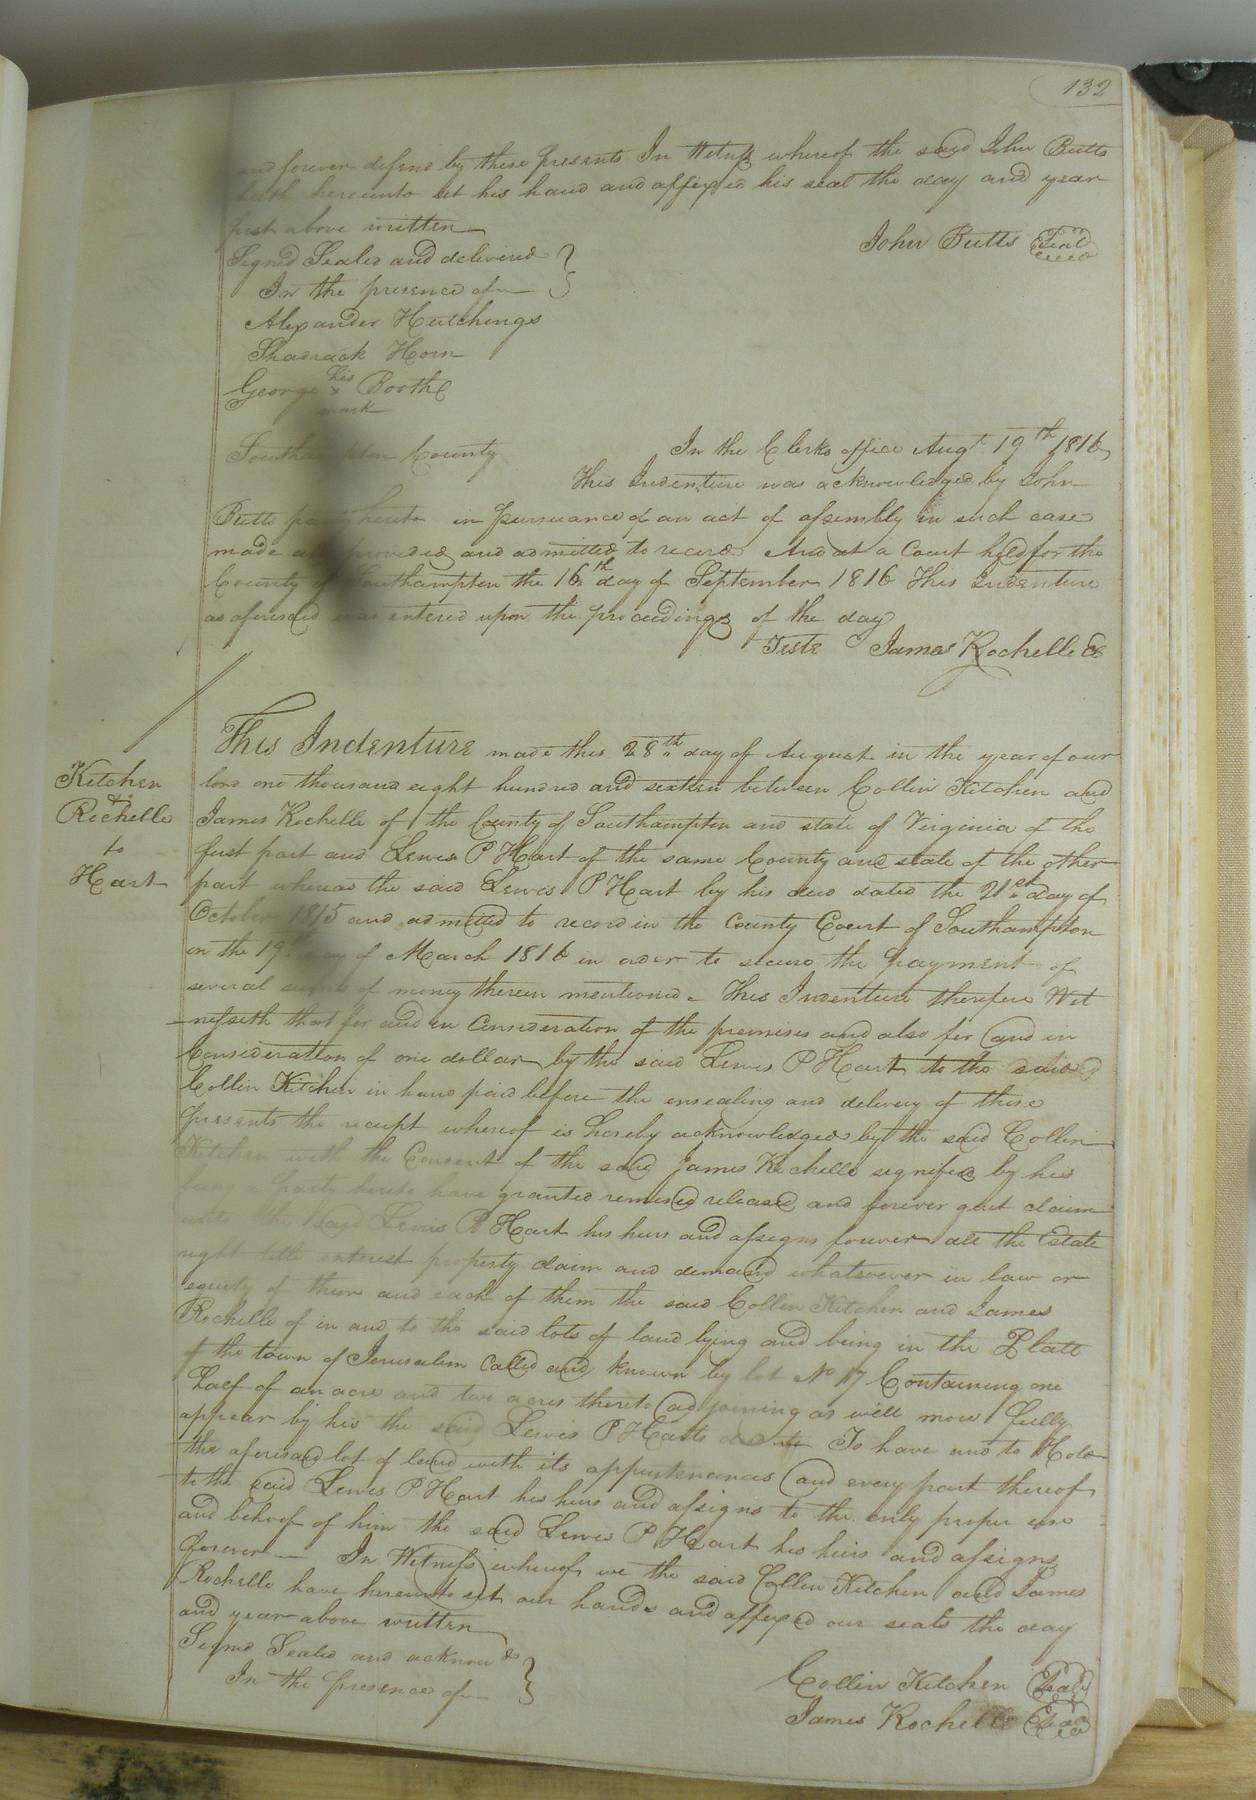 132
and forever defend by these presents In Witness whereof the said John Butts
hath hereunto set his hand and affixed his seal the day and year
first above written
John Butts Seal
Signed Sealed and delivered
In the presence of
Alexander Hutchings
Shadrack Horn
George his x mark Boothe
Southampton County
In the Clerks office Augt 19th 1816
This Indenture was acknowledged by John
Butts party hereto in pursuance of an act of assembly in such case
made and provided and admitted to record And at a Court held for the
County of Southampton the 16th day of September 1816 This Indenture
as aforesaid was entered upon the proceedings of the day
Teste James Rochelle CC
Kitchen
&
Rochelle
to
Hart
This Indenture made this 28th day of August in the year of our
lord one thousand eight hundred and sixteen between Collin Kitchen and
James Rochelle of the County of Southampton and state of Virginia of the
first part and Lewis P Hart of the same County and state of the other
part whereas the said Lewis P Hart by his deed dated the 21st day of
October 1815 and admitted to record in the County Court of Southampton
on the 19th day of March 1816 in order to secure the payment of
several sums of money therein mentioned. This Indenture therefore Wit
nesseth that for and in Consideration of the premises and also for and in
Consideration of one dollar by the said Lewis P Hart to the said
Collin Kitchen in hand paid before the ensealing and delivery of these
presents the receipt whereof is hereby acknowledged by the said Collin
Kitchen with the Consent of the said James Rochelle signified by his
being party hereto have granted remised released and forever quit claim
unto the said Lewis P Hart his heirs and assigns forever all the Estate
right title interest property claim and demand whatsoever in law or
equity of them and each of them the said Collin Kitchen and James
Rochelle of in and to the said lots of land lying and being in the Platt
of the town of Jerusalem Called and known by lot No 17 Containing one
half of an acre and two acres thereto adjoining as well more fully
appear by his the said Lewis P Harts deed To have and to Hold
the aforesaid lot of land with its appurtenances and every part thereof
to the said Lewis P Hart his heirs and assigns to the only proper use
and behoof of him the said Lewis P Hart his heirs and assigns
forever — In Witness whereof we the said Collin Kitchen and James
Rochelle have hereunto set our hands and affixed our seals the day
and year above written
Signed Sealed and acknowd
In the presence of
Collin Kitchen Seal
James Rochelle Seal